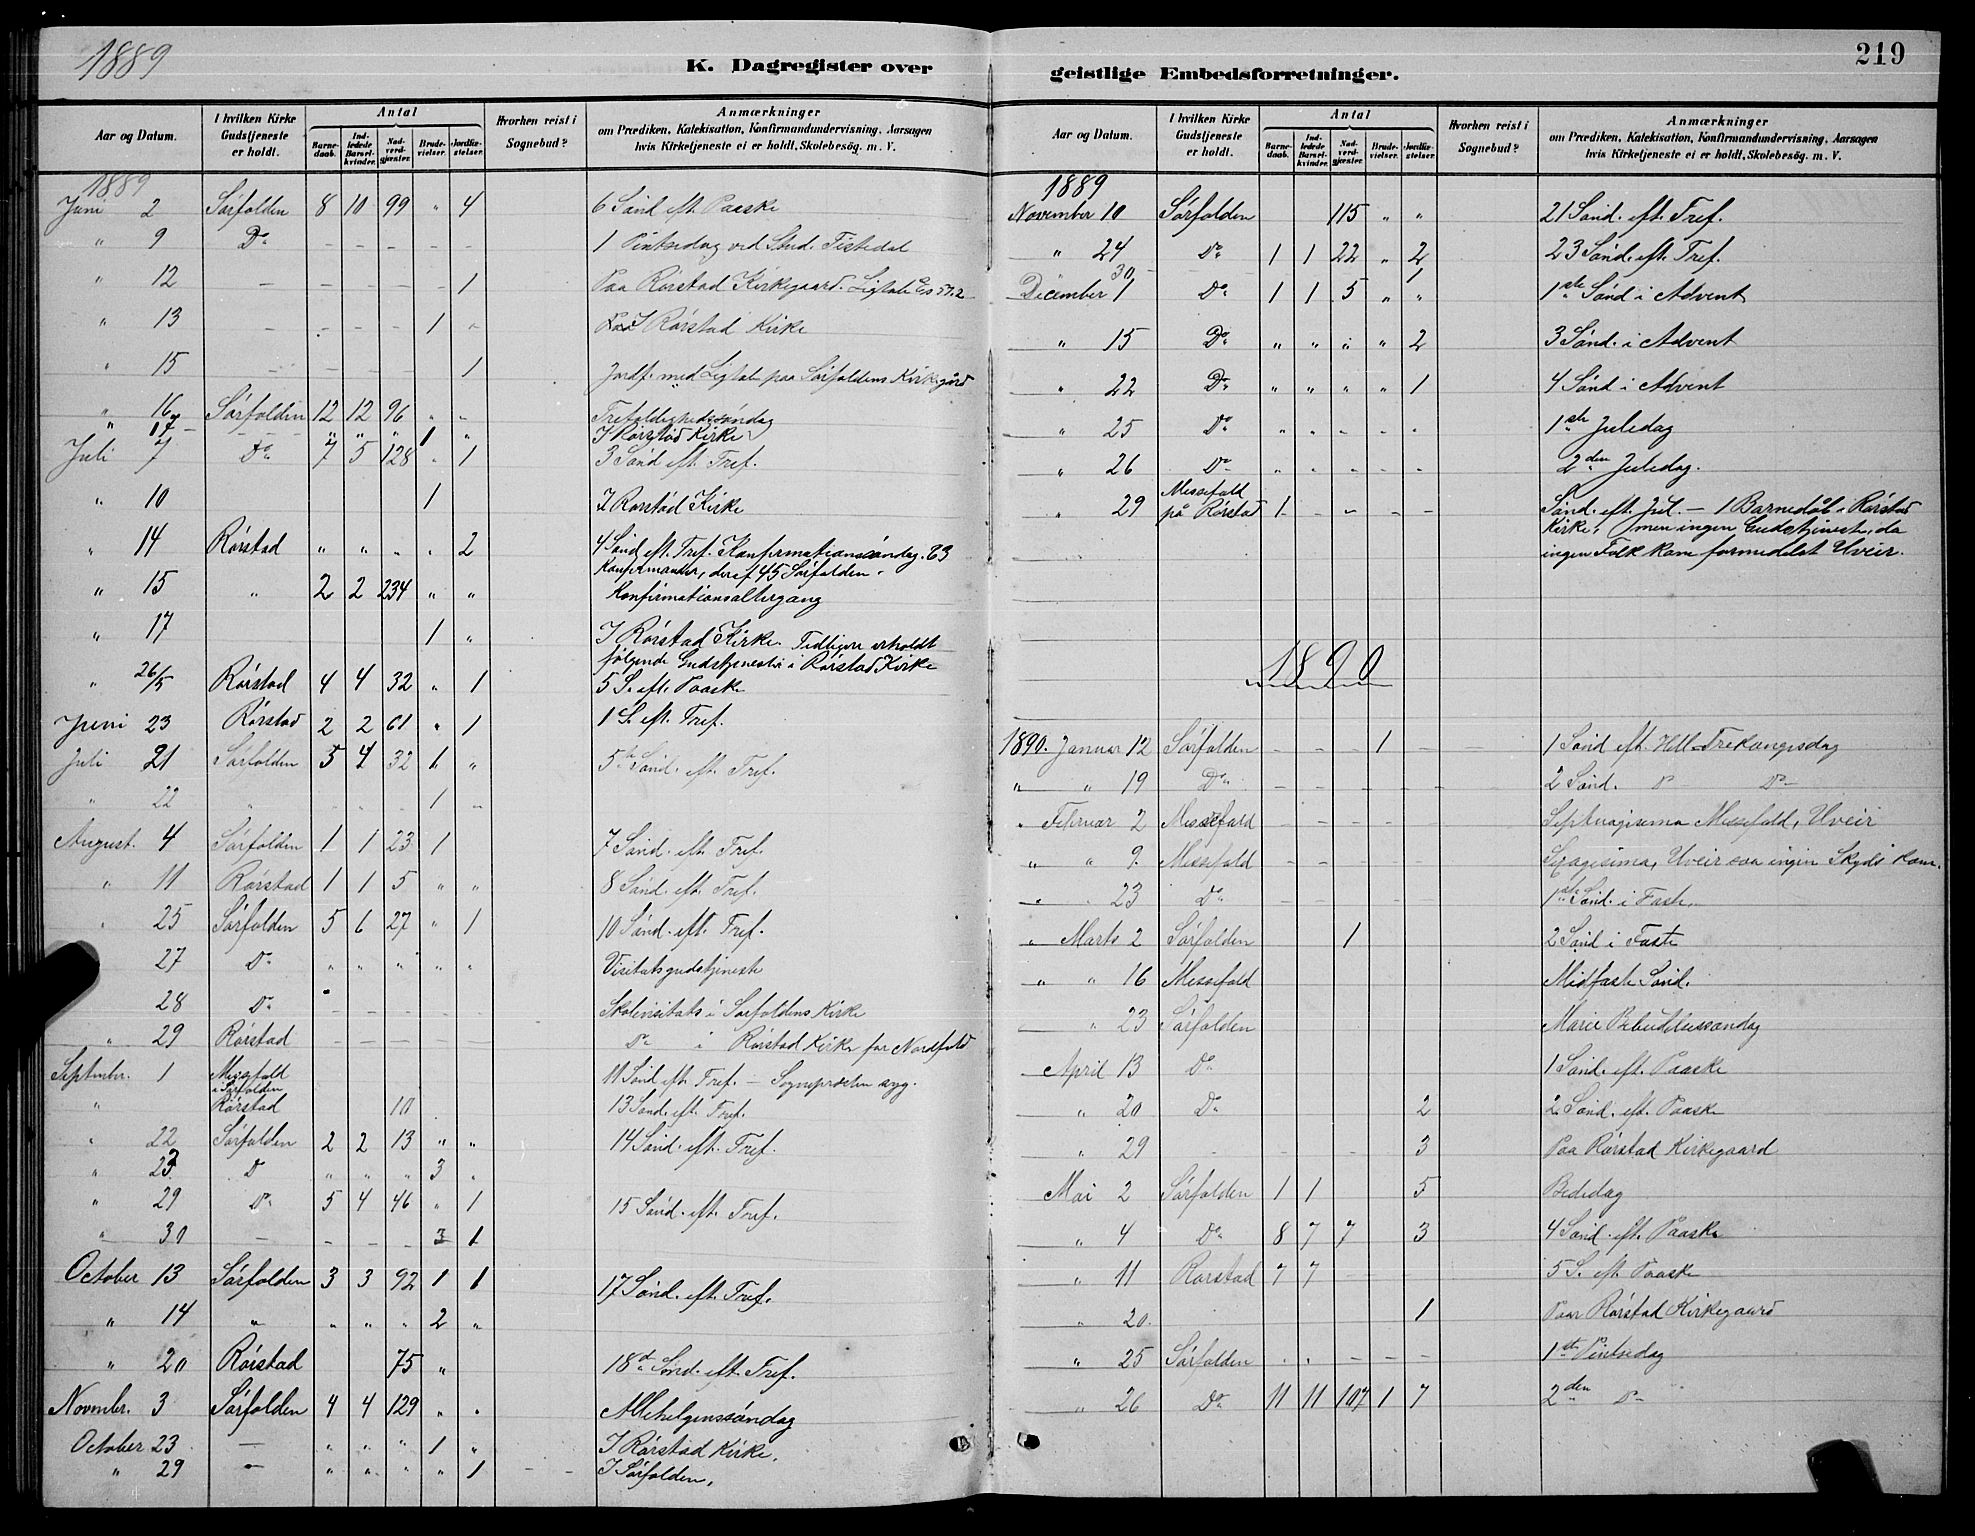 1889
K. Dagregister over
Aar og Datum.
I hvilken Kirke Gudstjeneste er holdt.
Antal
Barnedaab.
Indledede Barselkvinder.
Nadverdgjæster.
Brudevielser.
Jordfæstelser.
Hvorhen reist i Sognebud?
Anmærkninger
om Prædiken, Katekisation, Konfirmandundervisning, Aarsagen
hvis Kirketjeneste ei er holdt, Skolebesög. m. V.
1889
Juni 2 Sörfolden 8 10 99 " 4 6 Sönd eft. Paaske
" 9 Do - - - - - 1 Pintsedag ved Stud. Tistedal
" 12 - - - - - 1 Paa Rörstad Kirkegaard. Ligtale Es
" 13 - - - - 1 - I Rörstad Kirke
" 15 - - - - - 1 Jordf. med Ligtale paa Sörfoldens Kirkegård
" 16 Sörfolden 12 12 96 " " Trefoldighedssöndag
" 17 - " " " 1 " I Rörstad Kirke
Juli 7 Do 7 5 128 " 1 3 Sönd eft. Tref.
" 10 1 I Rörstad Kirke
" 14 Rörstad " " " " 2 4 Sönd eft. Tref. Konfirmationssöndag. 83
Konfirmander, deraf 45 Sörfolden.
" 15 " 2 2 234 " " Konfirmationsaltergang
" 17 1 " I Rörstad Kirke. Tidligere erholdt
følgende Gudstjeneste i Rörstad Kirke
" 26/5 Rörstad 4 4 32 " 1 5 S. eft. Paaske
Juni 23 Rörstad 2 2 61 " 1 1 S. eft. Tref.
Juli 21 Sörfolden 5 4 32 1 " 5te Sönd. eft. Tref.
" 22 " 1 -
August. 4 Sörfolden 1 1 23 1 7 Sönd. eft. Tref.
" 11 Rörstad 1 1 5 " " 8 Sönd. eft. Tref.
" 25 Sörfolden 5 6 27 " 1 10 Sönd. eft. Tref.
27 Do " " " " " Visitatsgudstjeneste
28 Do - - - - - Skolevisitats i Sörfoldens Kirke
" 29 Rörstad - - - - - Do i Rörstad Kirke for Nordfold
Septmbr. 1 Missefold
i Sörfolden 11 Sönd eft. Tref. - Sognepresten syg.
" Rörstad 10 13 Sönd. eft. Tref.
" 22 Sörfolden 2 2 13 " " 14 Sönd. eft. Tref.
" 23 D " " " 3 "
" 29 Do 5 4 46 " 1 15 Sönd. eft. Tref.
" 30 - - - - 3 1
October 13 Sörfolden 3 3 92 1 1 17 Sönd. eft. Tref.
" 14 " " " " 2 "
" 20 Rörstad 75 " 18d Sönd. eft. Tref.
Novmbr. 3 Sörfolden 4 4 129 " " Allehelgenssöndag
October 23 - " " " 1 " I Rörstad Kirke.
" 29 - " " " " 1 - - I Sörfolden.
219
geistlige Embedsforretninger.
Aar og Datum.
I hvilken Kirke Gudstjeneste er holdt.
Antal
Barnedaab.
Indledede Barselkvinder.
Nadverdgjæster.
Brudevielser.
Jordfæstelser.
Hvorhen reist i Sognebud?
Anmærkninger
om Prædiken, Katekisation, Konfirmandundervisning, Aarsagen
hvis Kirketjeneste ei er holdt, Skolebesög. m. V.
1889
November 10 Sörfolden 115 " " 21 Sönd. eft. Tref.
" 24 Do 1 1 22 " 2 23 Sönd. eft. Tref.
30 - 1
December 1 Do 1 1 5 " " 1ste Sönd i Advent
" 15 Do " " " " 2 3 Sönd. i Advent
" 22 Do " " " " 1 4 Sönd i Advent
" 25 Do " " " " " 1ste Juledag
" 26 Do " " " " - 2den Juledag.
" 29 Missefold
på Rörstad 1 - - - - Sönd. eft. Jul. - 1 Barnedåb i Rörstad
Kirke, men ingen Gudstjeneste, da
ingen Folk kom formedelst Uveir.
1890
1890. Januar 12 Sörfolden - - - 1 - 1 Sönd eft. Hell-Trekongersdag
" " 19 Do - - - - - 2 Sönd. Do Do
" Februar 2 Messefald - - - - - Septuagesima Missefald, Uveir
" " 9 Missefald - - - - - Sexagesima, Uveir saa ingen Skyds kom.
" " 23 Do - - - - - 1ste Sönd. i Faste
" Marts 2 Sörfolden 1 2 Sönd i Faste
" " 16 Messefold Midfaste Sönd.
" 23 Sörfolden Marie Bebudelsessöndag
April 13 Do 1 Sönd. eft. Paaske
" 20 Do 2 2 Sönd. eft. Paaske
" 29 - - - - 3 Paa Rörstad Kirkegaard
Mai 2 Sörfolden 1 1 5 Bededag
" 4 Do 8 7 7 3 4 Sönd. eft. Paaske
" 11 Rorstad 7 7 - - - 5 S. eft Paaske
" 20. 1 Paa Rörstad Kirkegaard
" 25 Sörfolden - - - - - 1ste Pintsedag
" 26 Do 11 11 107 1 7 2den Do